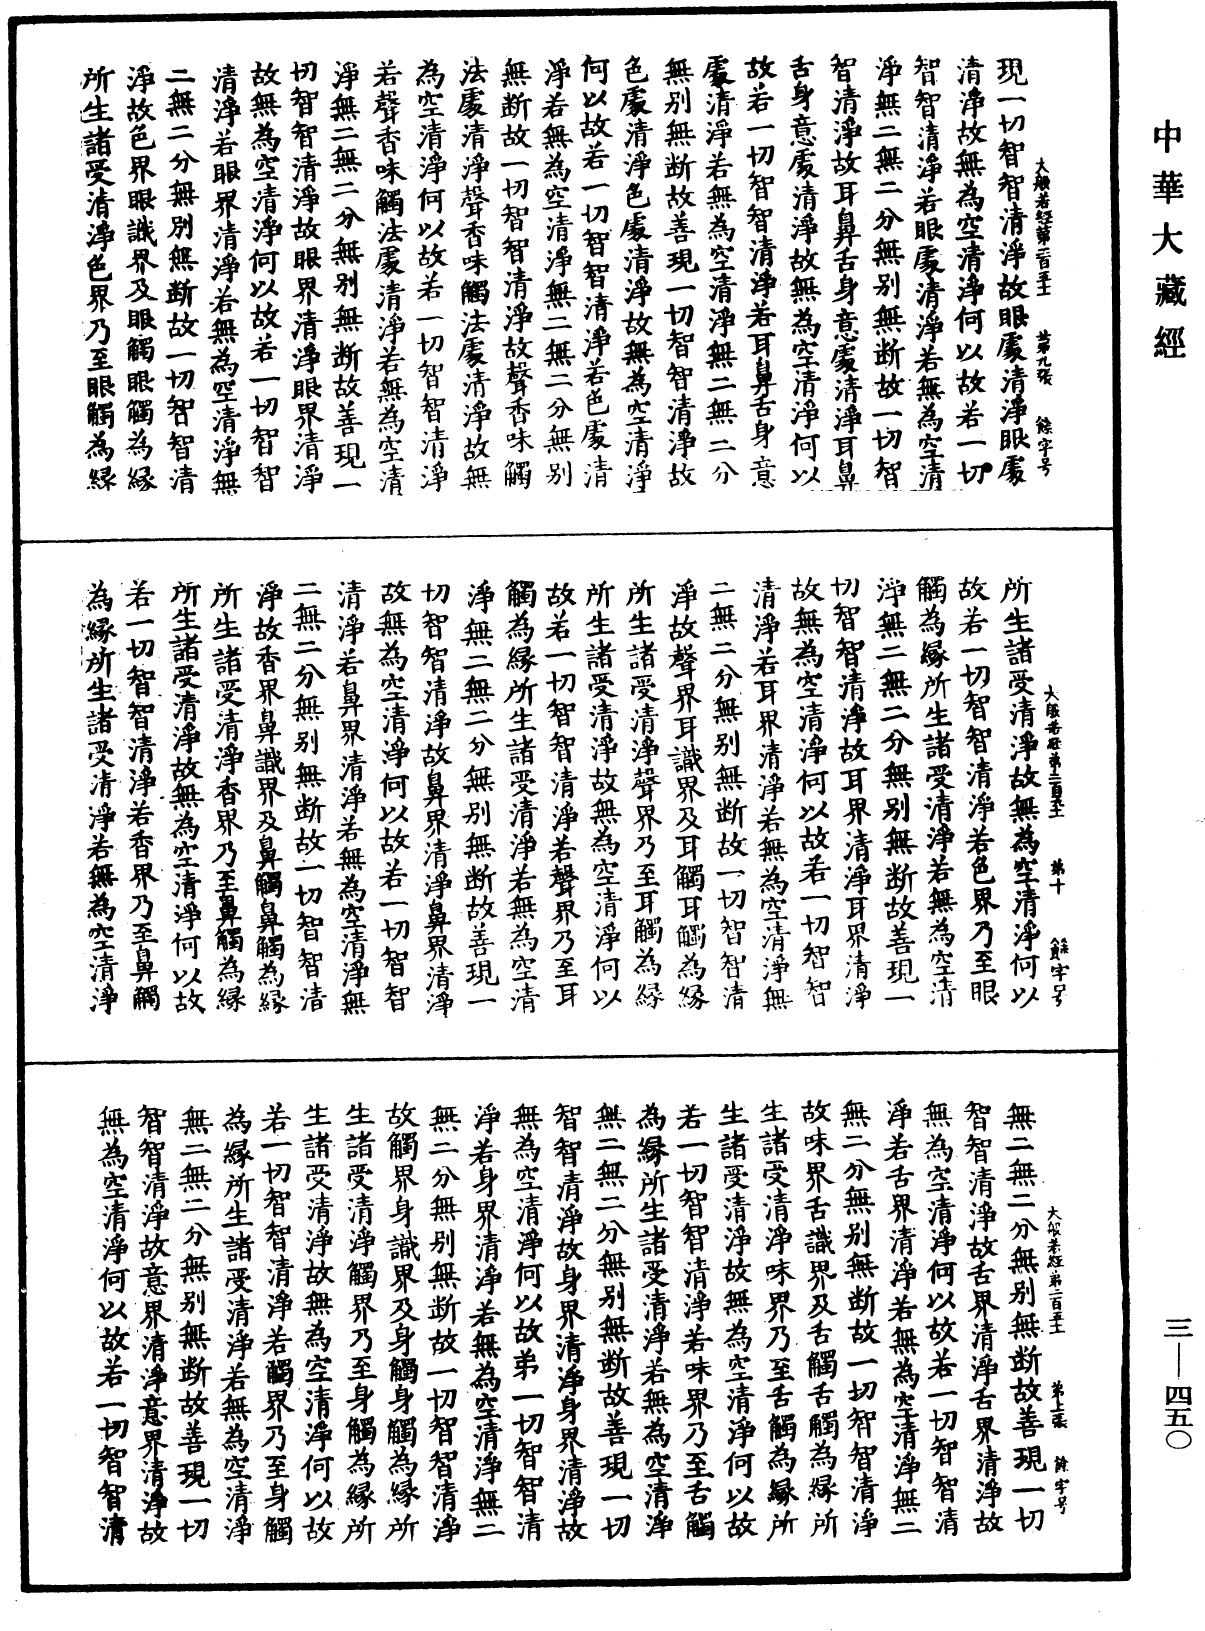 中華大藏經
三—四五〇
大般若經第二百五十 第九張 餘字号
現一切智智清淨故眼處清淨眼處
清淨故無為空清淨何以故若一切
智智清淨若眼處清淨若無為空清
淨無二無二分無別無斷故一切智
智清淨故耳鼻舌身意處清淨耳鼻
舌身意處清淨故無為空清淨何以
故若一切智智清淨若耳鼻舌身意
處清淨若無為空清淨無二無二分
無別無斷故善現一切智智清淨故
色處清淨色處清淨故無為空清淨
何以故若一切智智清淨若色處清
淨若無為空清淨無二無二分無別
無斷故一切智智清淨故聲香味觸
法處清淨聲香味觸法處清淨故無
為空清淨何以故若一切智智清淨
若聲香味觸法處清淨若無為空清
淨無二無二分無別無斷故善現一
切智智清淨故眼界清淨眼界清淨
故無為空清淨何以故若一切智智
清淨若眼界清淨若無為空清淨無
二無二分無別無斷故一切智智清
淨故色界眼識界及眼觸眼觸為緣
所生諸受清淨色界乃至眼觸為緣
大般若經第二百五十 第十 餘字号
所生諸受清淨故無為空清淨何以
故若一切智智清淨若色界乃至眼
觸為緣所生諸受清淨若無為空清
淨無二無二分無別無斷故善現一
切智智清淨故耳界清淨耳界清淨
故無為空清淨何以故若一切智智
清淨若耳界清淨若無為空清淨無
二無二分無別無斷故一切智智清
淨故聲界耳識界及耳觸耳觸為緣
所生諸受清淨聲界乃至耳觸為緣
所生諸受清淨故無為空清淨何以
故若一切智智清淨若聲界乃至耳
觸為緣所生諸受清淨若無為空清
淨無二無二分無別無斷故善現一
切智智清淨故鼻界清淨鼻界清淨
故無為空清淨何以故若一切智智
清淨若鼻界清淨若無為空清淨無
二無二分無別無斷故一切智智清
淨故香界鼻識界及鼻觸鼻觸為緣
所生諸受清淨香界乃至鼻觸為緣
所生諸受清淨故無為空清淨何以故
若一切智智清淨若香界乃至鼻觸
為緣所生諸受清淨若無為空清淨
大般若經第二百五十 第十一張 餘字号
無二無二分無別無斷故善現一切
智智清淨故舌界清淨舌界清淨故
無為空清淨何以故若一切智智清
淨若舌界清淨若無為空清淨無二
無二分無別無斷故一切智智清淨
故味界舌識界及舌觸舌觸為緣所
生諸受清淨味界乃至舌觸為緣所
生諸受清淨故無為空清淨何以故
若一切智智清淨若味界乃至舌觸
為緣所生諸受清淨若無為空清淨
無二無二分無別無斷故善現一切
智智清淨故身界清淨身界清淨故
無為空清淨何以故弟一切智智清
淨若身界清淨若無為空清淨無二
無二分無別無斷故一切智智清淨
故觸界身識界及身觸身觸為緣所
生諸受清淨觸界乃至身觸為緣所
生諸受清淨故無為空清淨何以故
若一切智智清淨若觸界乃至身觸
為緣所生諸受清淨若無為空清淨
無二無二分無別無斷故善現一切
智智清淨故意界清淨意界清淨故
無為空清淨何以故若一切智智清